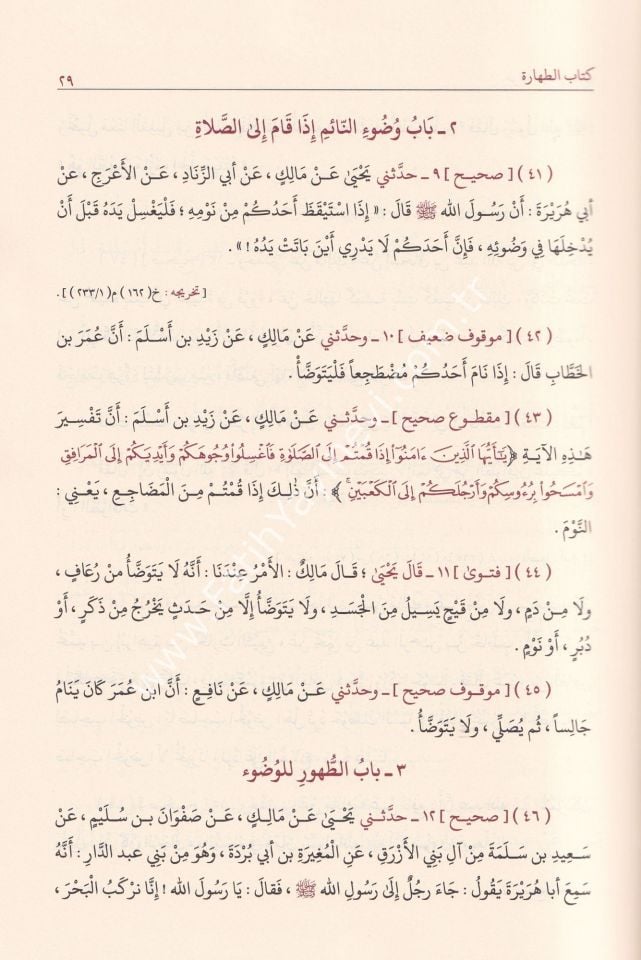 كتاب الطهارة ٢٩
٢ ـ بَابُ وُضُوءِ النَّائِمِ إِذَا قَامَ إِلىٰ الصَّلاةِ
( ٤١ ) [ صحيح ] ٩ ـ حدَّثني يَحْيَىٰ عَنْ مَالِكٍ، عَنْ أبي الزِّنَادِ، عَـنْ الأَعْرَجِ ، عَنْ
أبي هُرَيْرَةَ : أَنْ رَسُـولَ الله ﷺ قَالَ : « إِذَا اسْتَيْقَظَ أَحَدُكمْ مِنْ نَوْمِهِ ؛ فَليَغْسِلْ يَدَهُ قَبْلَ أَنْ
يُدْخِلَهَا فِي وَضُوئِهِ ، فَإِنَّ أَحَدَكُمْ لَا يَدْرِي أَيْنَ بَاتَتْ يَدُهُ ! » .
[ تخريجه : خ( ١٦٢ ) م( ٢٣٣/١ ) ] .
( ٤٢ ) [ موقوف ضعيف ] ١٠ ـ وحدَّثني عَنْ مَالِكٍ ، عَنْ زَيْدِ بن أَسْلَمَ : أَنَّ عُمَرَ بن
الخَطَّابِ قَالَ : إِذَا نَامَ أَحَدُكُمْ مُضْطَجِعاً فَلْيَتَوَضَّأْ .
( ٤٣ ) [ مقطوع صحيح ] ـ وحدَّثـني عَـنْ مَالِكٍ ، عَنْ زَيْدِ بن أَسْلَمَ : أَنَّ تَفْسِيرَ
هَـذِهِ الآيَـةِ ﴿يَـٰٓأَيُّهَا ٱلَّذِينَ ءَامَنُوٓا۟ إِذَا قُمْتُمْ إِلَى ٱلصَّلَوٰةِ فَٱغْسِلُوا۟ وُجُوهَكُمْ وَأَيْدِيَكُمْ إِلَى ٱلْمَرَافِقِ
وَٱمْسَحُوا۟ بِرُءُوسِكُمْ وَأَرْجُلَكُمْ إِلَى ٱلْكَعْبَيْنِ ۚ ﴾ : أَنَّ ذٰلِكَ إِذَا قُمْتُـمْ مِنَ المَضَاجِـعِ ، يَعْنِي :
النَّوْمَ .
( ٤٤ ) [ فتوىٰ ] ١١ ـ قَالَ يَحْيَىٰ ؛ قَـالَ مَالِكٌ : الأَمْرُ عِنْدَنَا : أَنَّهُ لَا يَتَوَضَّأُ منْ رُعَافٍ ،
ولَا مِـنْ دَمٍ ، ولَا مِنْ قَيْحٍ يَسِيلُ مِنَ الجَسَدِ ، ولَا يَتَوَضَّأُ إِلَّا مِنْ حَدَثٍ يَخْرُجُ مِنْ ذَكَرٍ ، أَوْ
دُبُرٍ ، أَوْ نَوْمٍ .
( ٤٥ ) [ موقوف صحيح ] ـ وحدَّثني عَنْ مَالِكٍ ، عَنْ نَافِعٍ : أَنَّ ابن عُمَرَ كَانَ يَنَامُ
جَالِساً ، ثُم يُصَلِّي ، ولَا يَتَوَضَّأُ .
٣ ـ بابُ الطَّهُورِ للوُضُوء
( ٤٦ ) [ صحيح ] ١٢ ـ حدَّثني يَحْيَىٰ عَن مَالِكٍ ، عَـنْ صَفْوَانَ بـن سُلَيْمٍ ، عَنْ
سَـعِيدِ بن سَـلَمَةَ مِنْ آلِ بَنِي الأَزْرَقِ ، عَنِ المُغِيرَةِ بن أبي بُرْدَةَ ، وَهُوَ مِنْ بَنِي عبد الدَّارِ : أَنَّهُ
سَمِعَ أبا هُرَيْرَةَ يَقُولُ : جَاءَ رَجُلٌ إِلىٰ رَسُولِ الله ﷺ ، فَقالَ : يَا رَسُولَ الله ! إِنَّا نرْكَبُ البَحْرَ ،
www.FatihYayinevi.com.tr